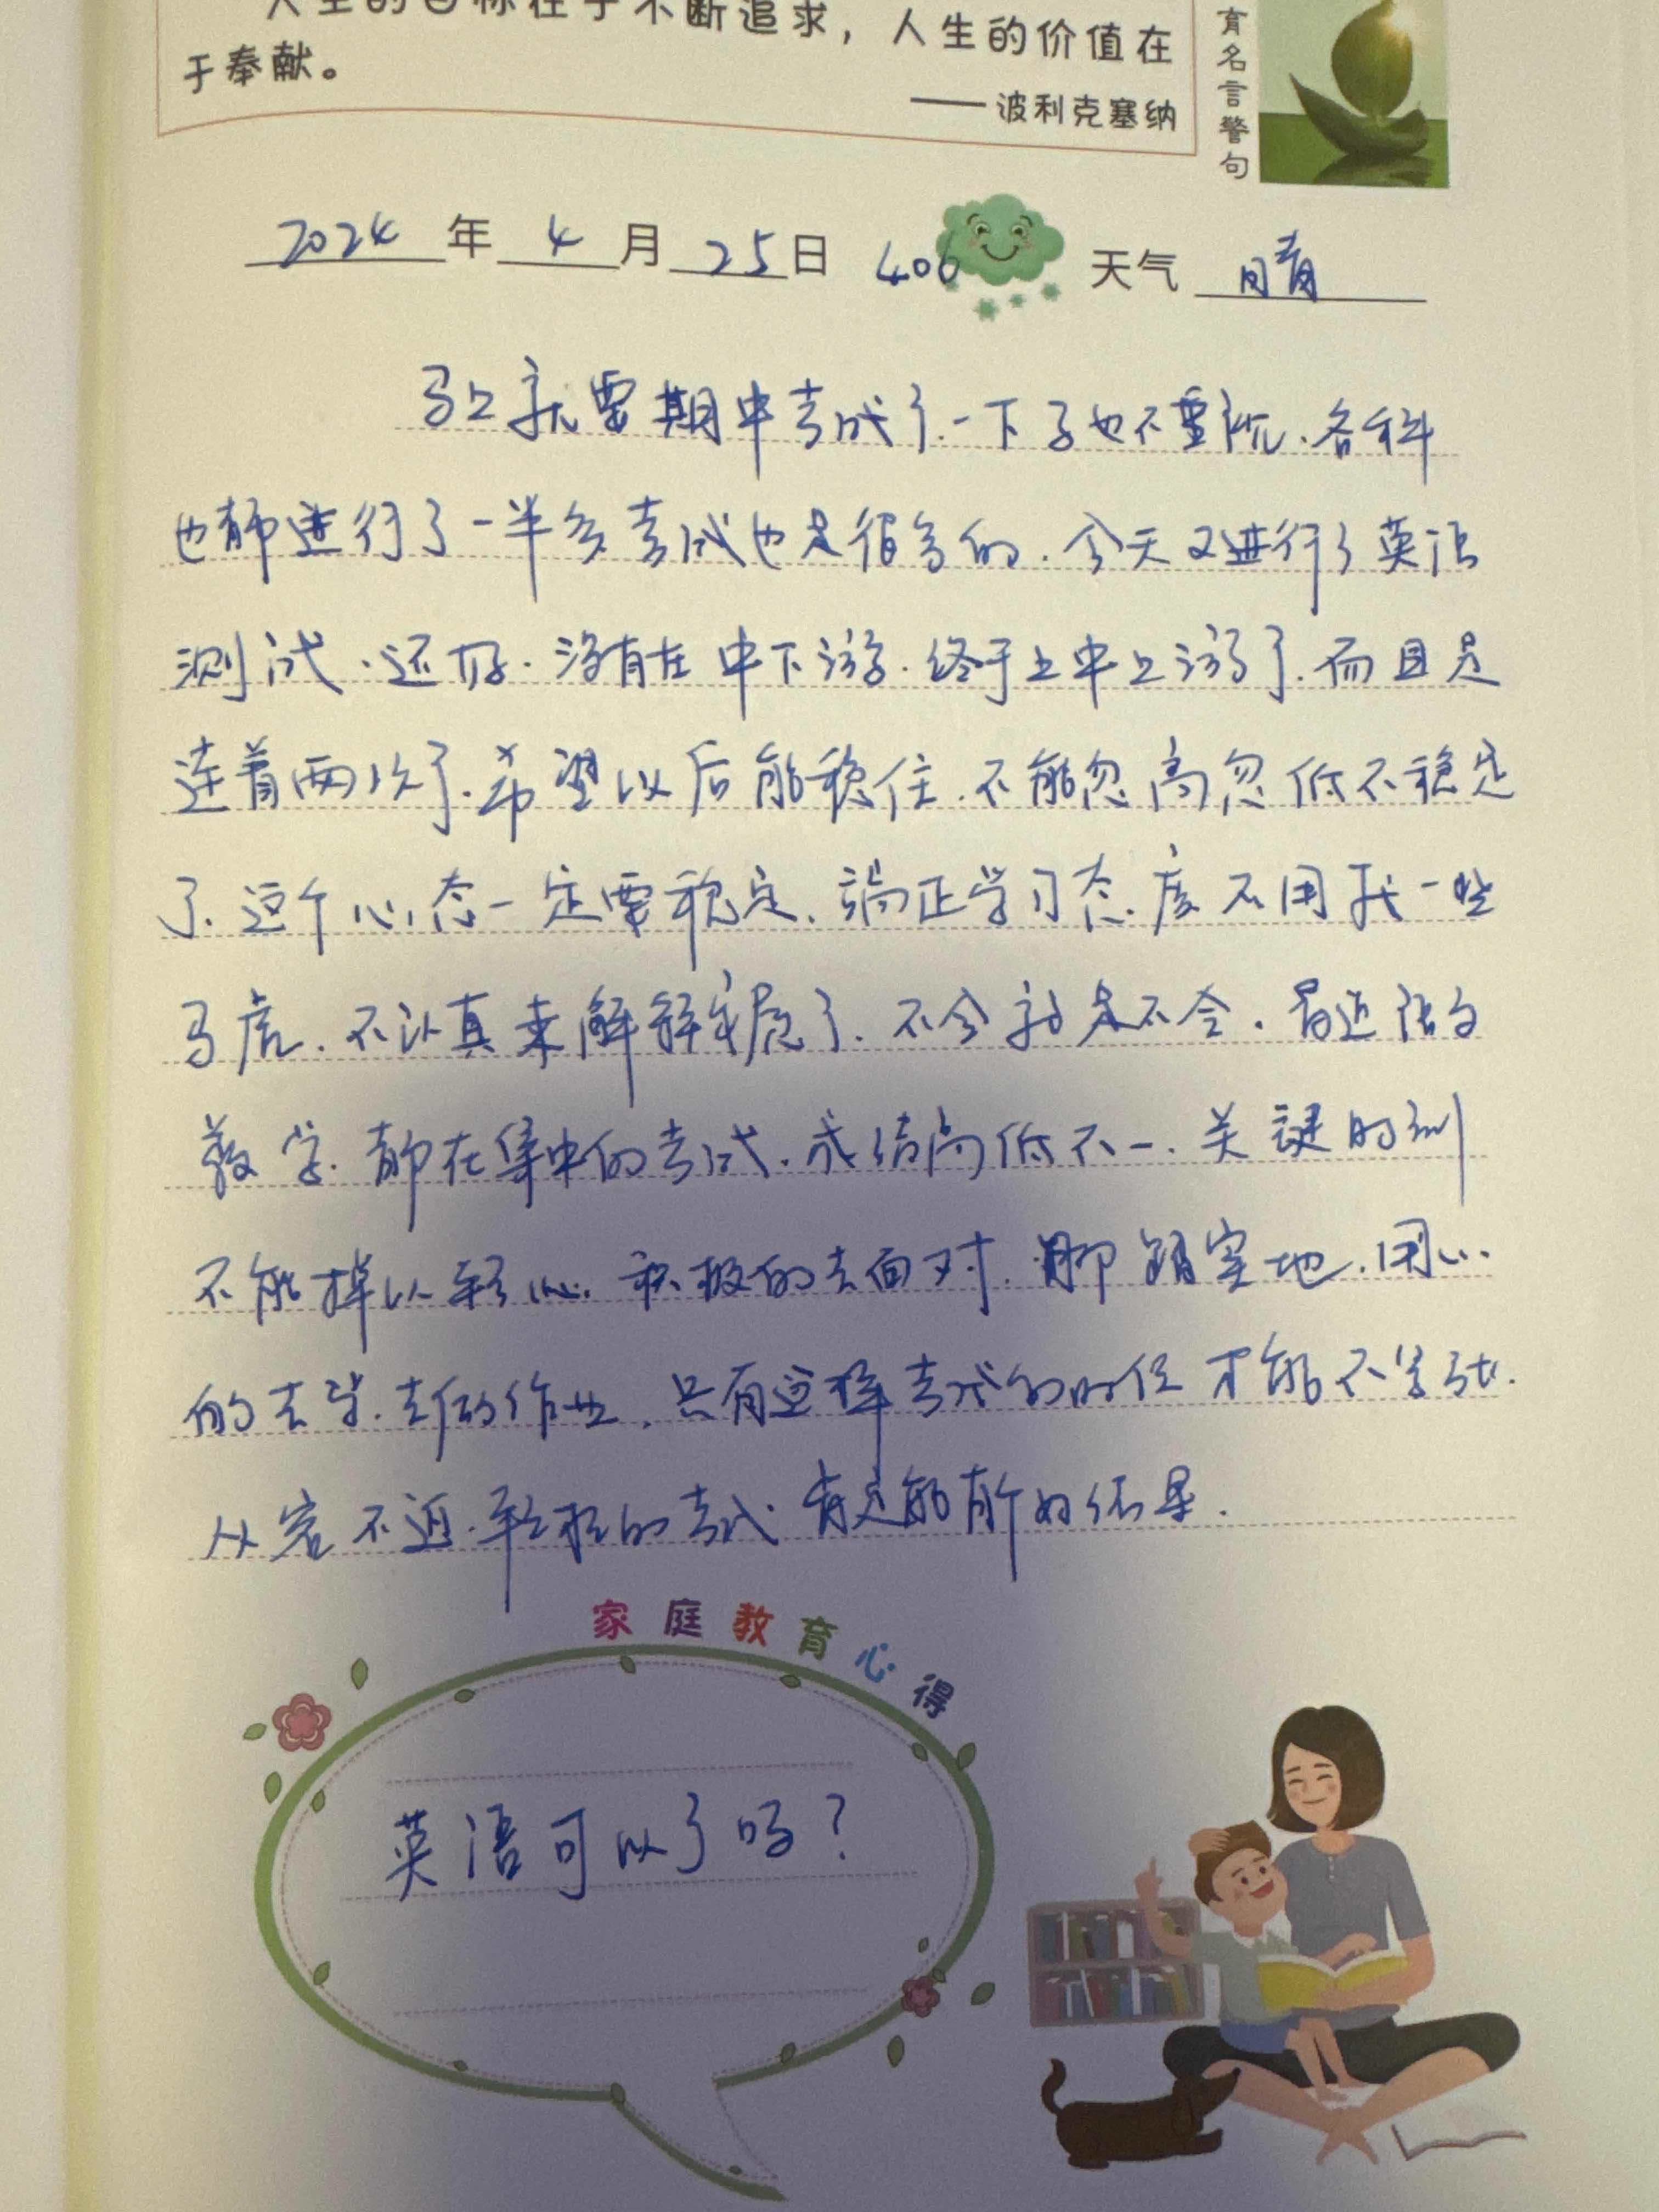 人生的目标在于不断追求，人生的价值在
于奉献。
——波利克塞纳
育名言警句
2024年4月25日 406 天气 晴
马上就要期中考试了.一下子也不重视.各科
也都进行了一半多考试也是很多的.今天又进行了英语
测试.还好.没有在中下游.终于上中上游了.而且是
连着两次了.希望以后能稳住.不能忽高忽低不稳定
了.这个心态一定要稳定.端正学习态度不用找一些
马虎.不认真来解释成绩了.不会就是不会.最近语文
数学.都在集中的考试.成绩高低不一.关键时刻
不能掉以轻心.积极的去面对.脚踏实地.用心
的去学.去做作业.只有这样考试的时候才能不紧张.
从容不迫.轻松的考试.肯定能有个好结果.
家庭教育心得
英语可以了吗？